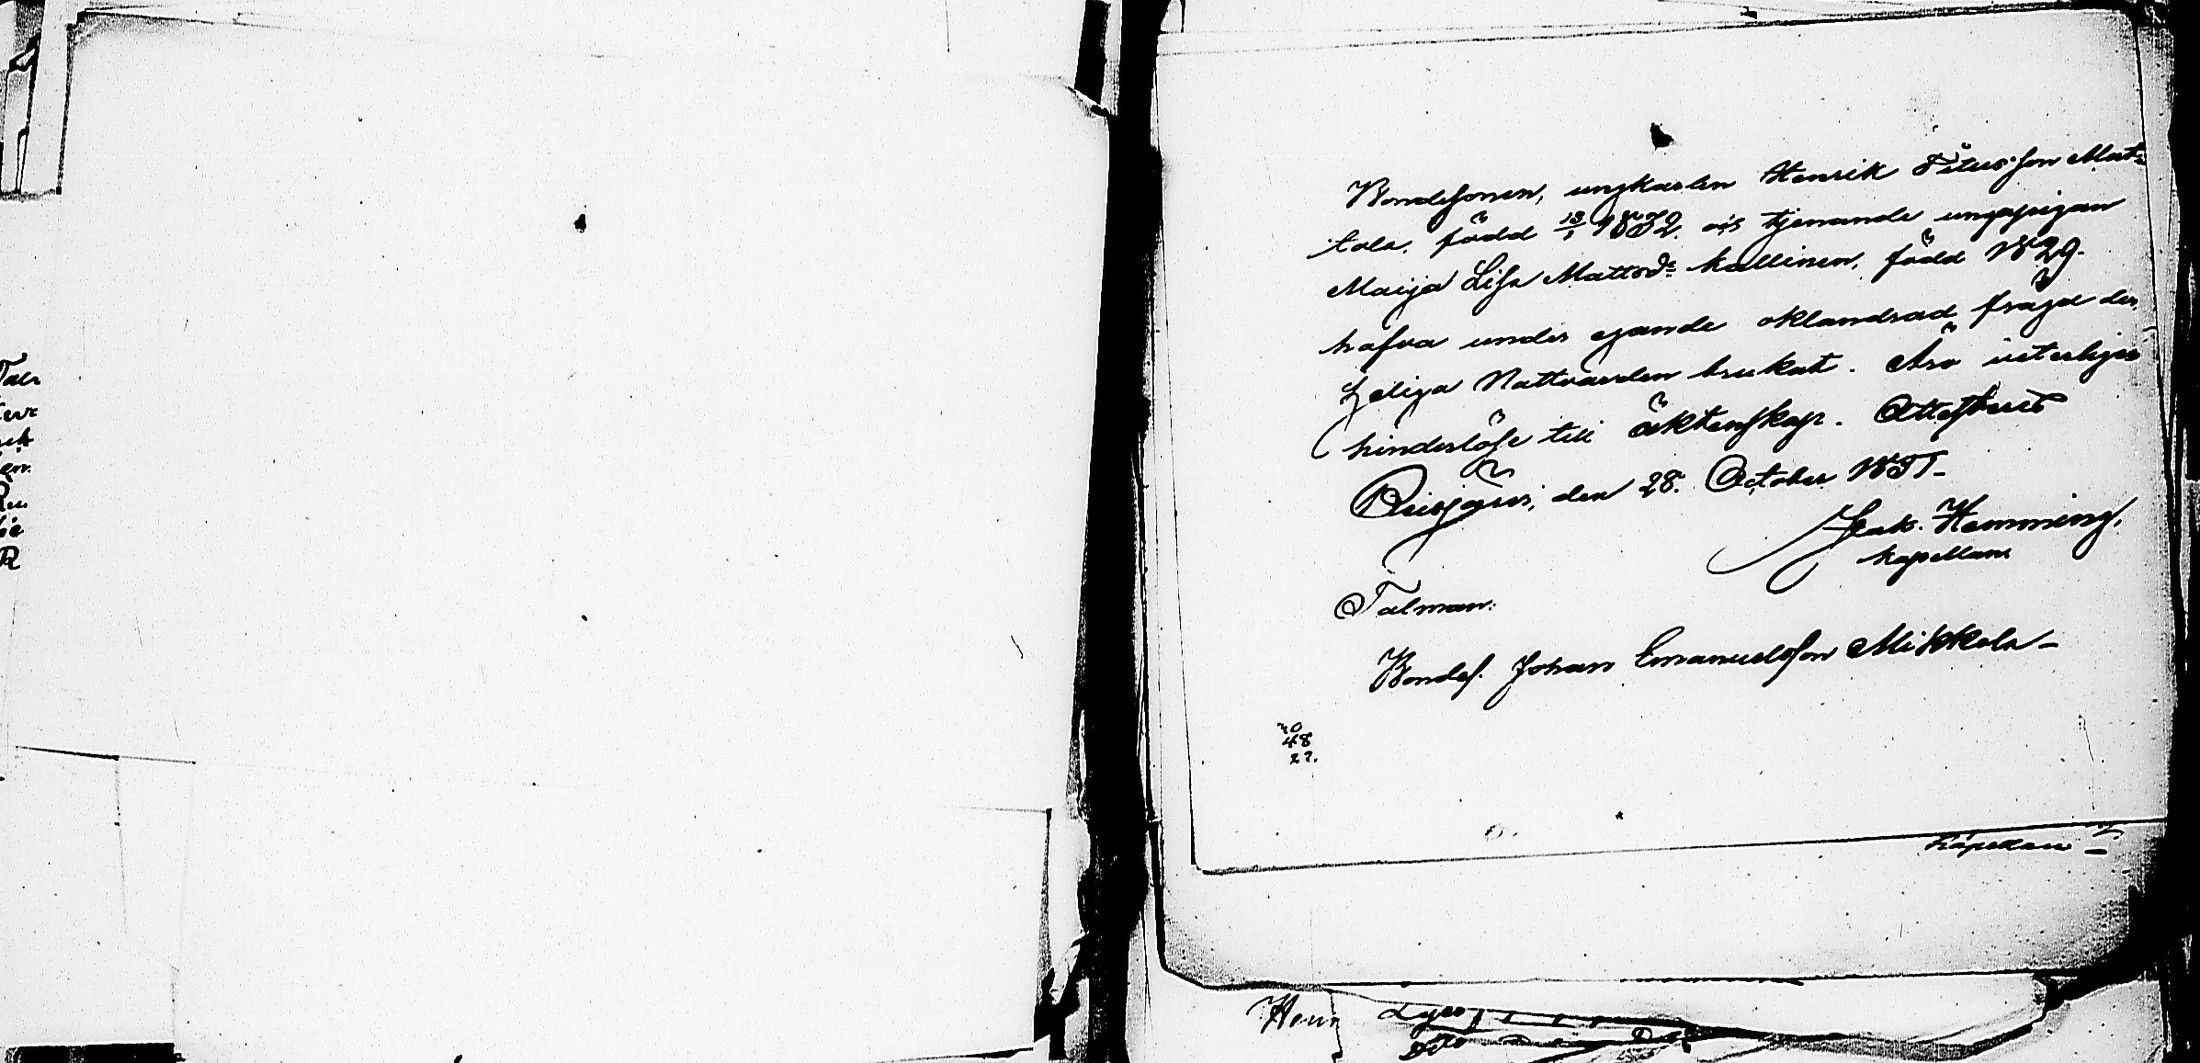 Bondesonen, ungkarlen Henrik Petersson Mat=
tala, född 13/1 1832. o/s tjenande ungapigan
Maija Lisa Mattsd: Kallinen, född 1829.
hafva under egande oklandrad fräjd den
Heliga Nattvarden brukat. Äro veterligen
hinderlöse till äktenskap. Attesteras
Reisjärvi, den 28. October 1851_
Isak. Hemming,
kapellan
Talman:
Bondes. Johan Emanuelsson Mikkola _
48
27.
Kapellan
Hen